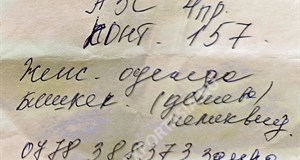 АЗС 4пр.
КОНТ. 157
Женс. одежда
Бишкек. (дешева)
неликвид.
0778 388373